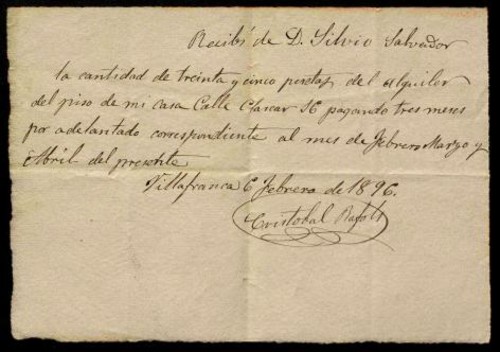 Recibí de D. Silvio Salvador
la cantidad de treinta y cinco pesetas del alquiler
del piso de mi casa Calle Clascar 16 pagando tres meses
por adelantado correspondiente al mes de Febrero Marzo y
Abril del presente
Villafranca 6 Febrero de 1896.
Cristobal